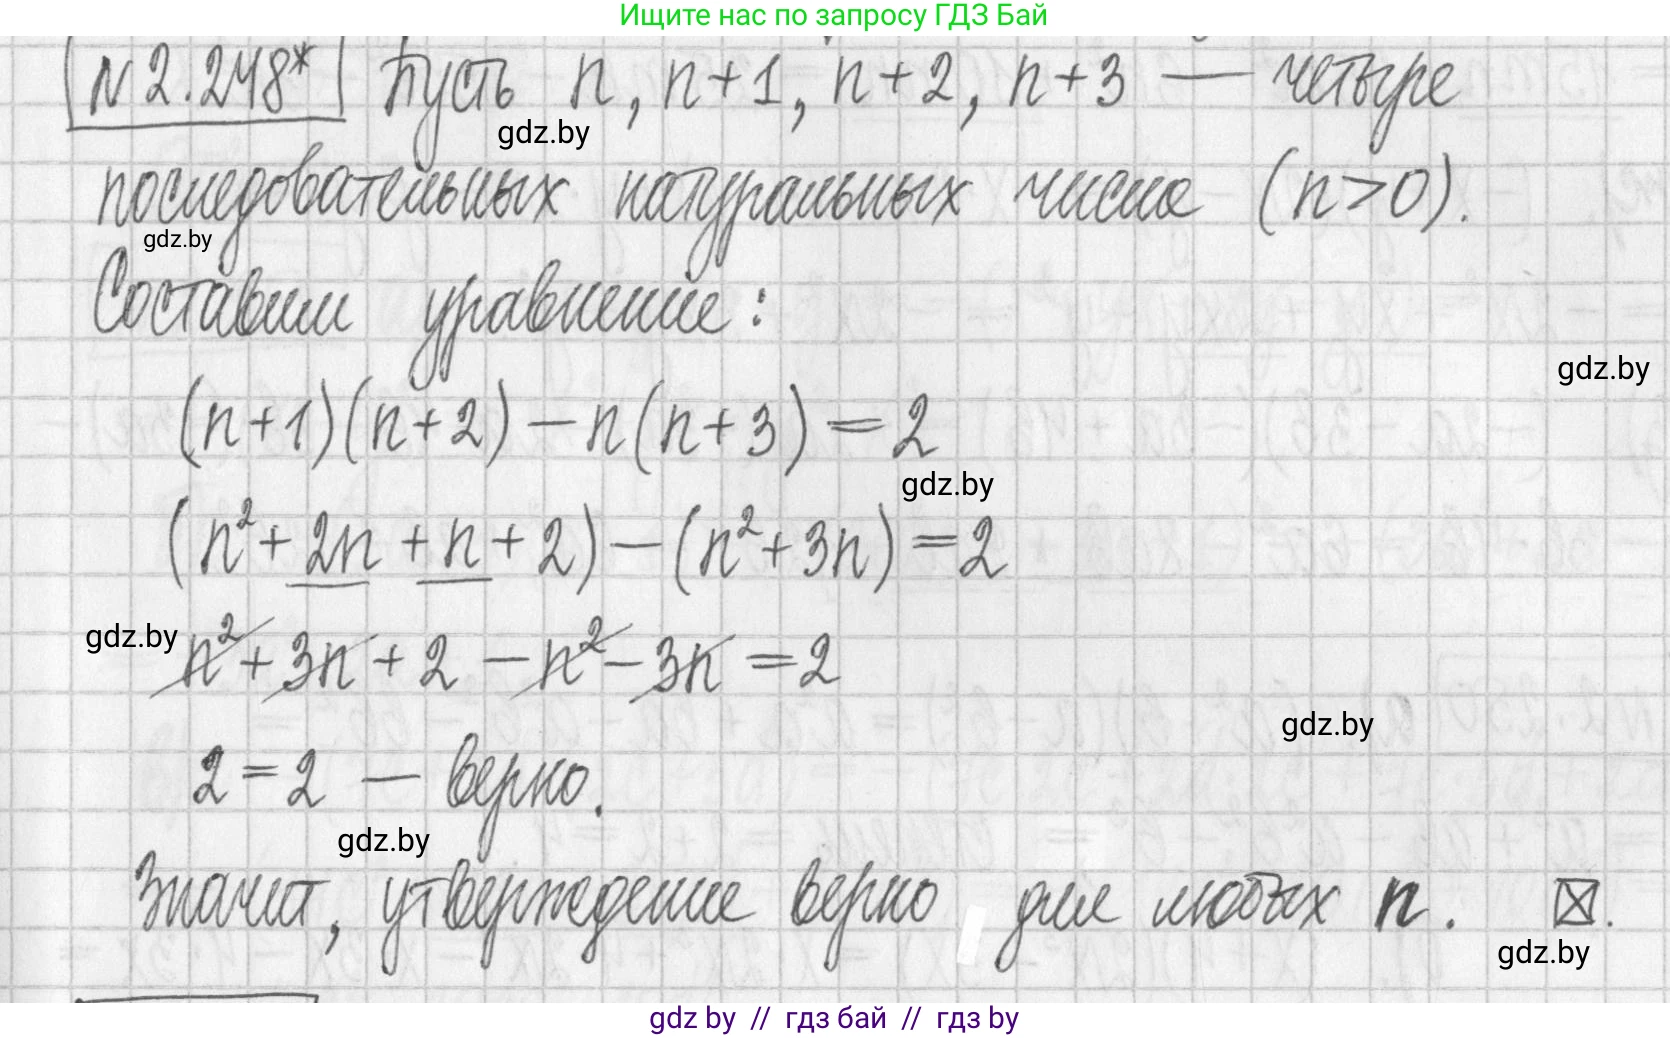 Ищите нас по запросу ГДЗ Бай
N2.248* Пусть n, n+1, n+2, n+3 — четыре
gdz.by
последовательных натуральных числа (n>0).
gdz.by
Составим уравнение:
gdz.by
(n+1)(n+2)-n(n+3)=2
gdz.by
(n²+2n+n+2)-(n²+3n)=2
gdz.by
n²+3n+2-n²-3n=2
gdz.by
2=2 — верно.
gdz.by
Значит, утверждение верно для любых n. ☒.
gdz.by
gdz by // гдз бай // гдз by